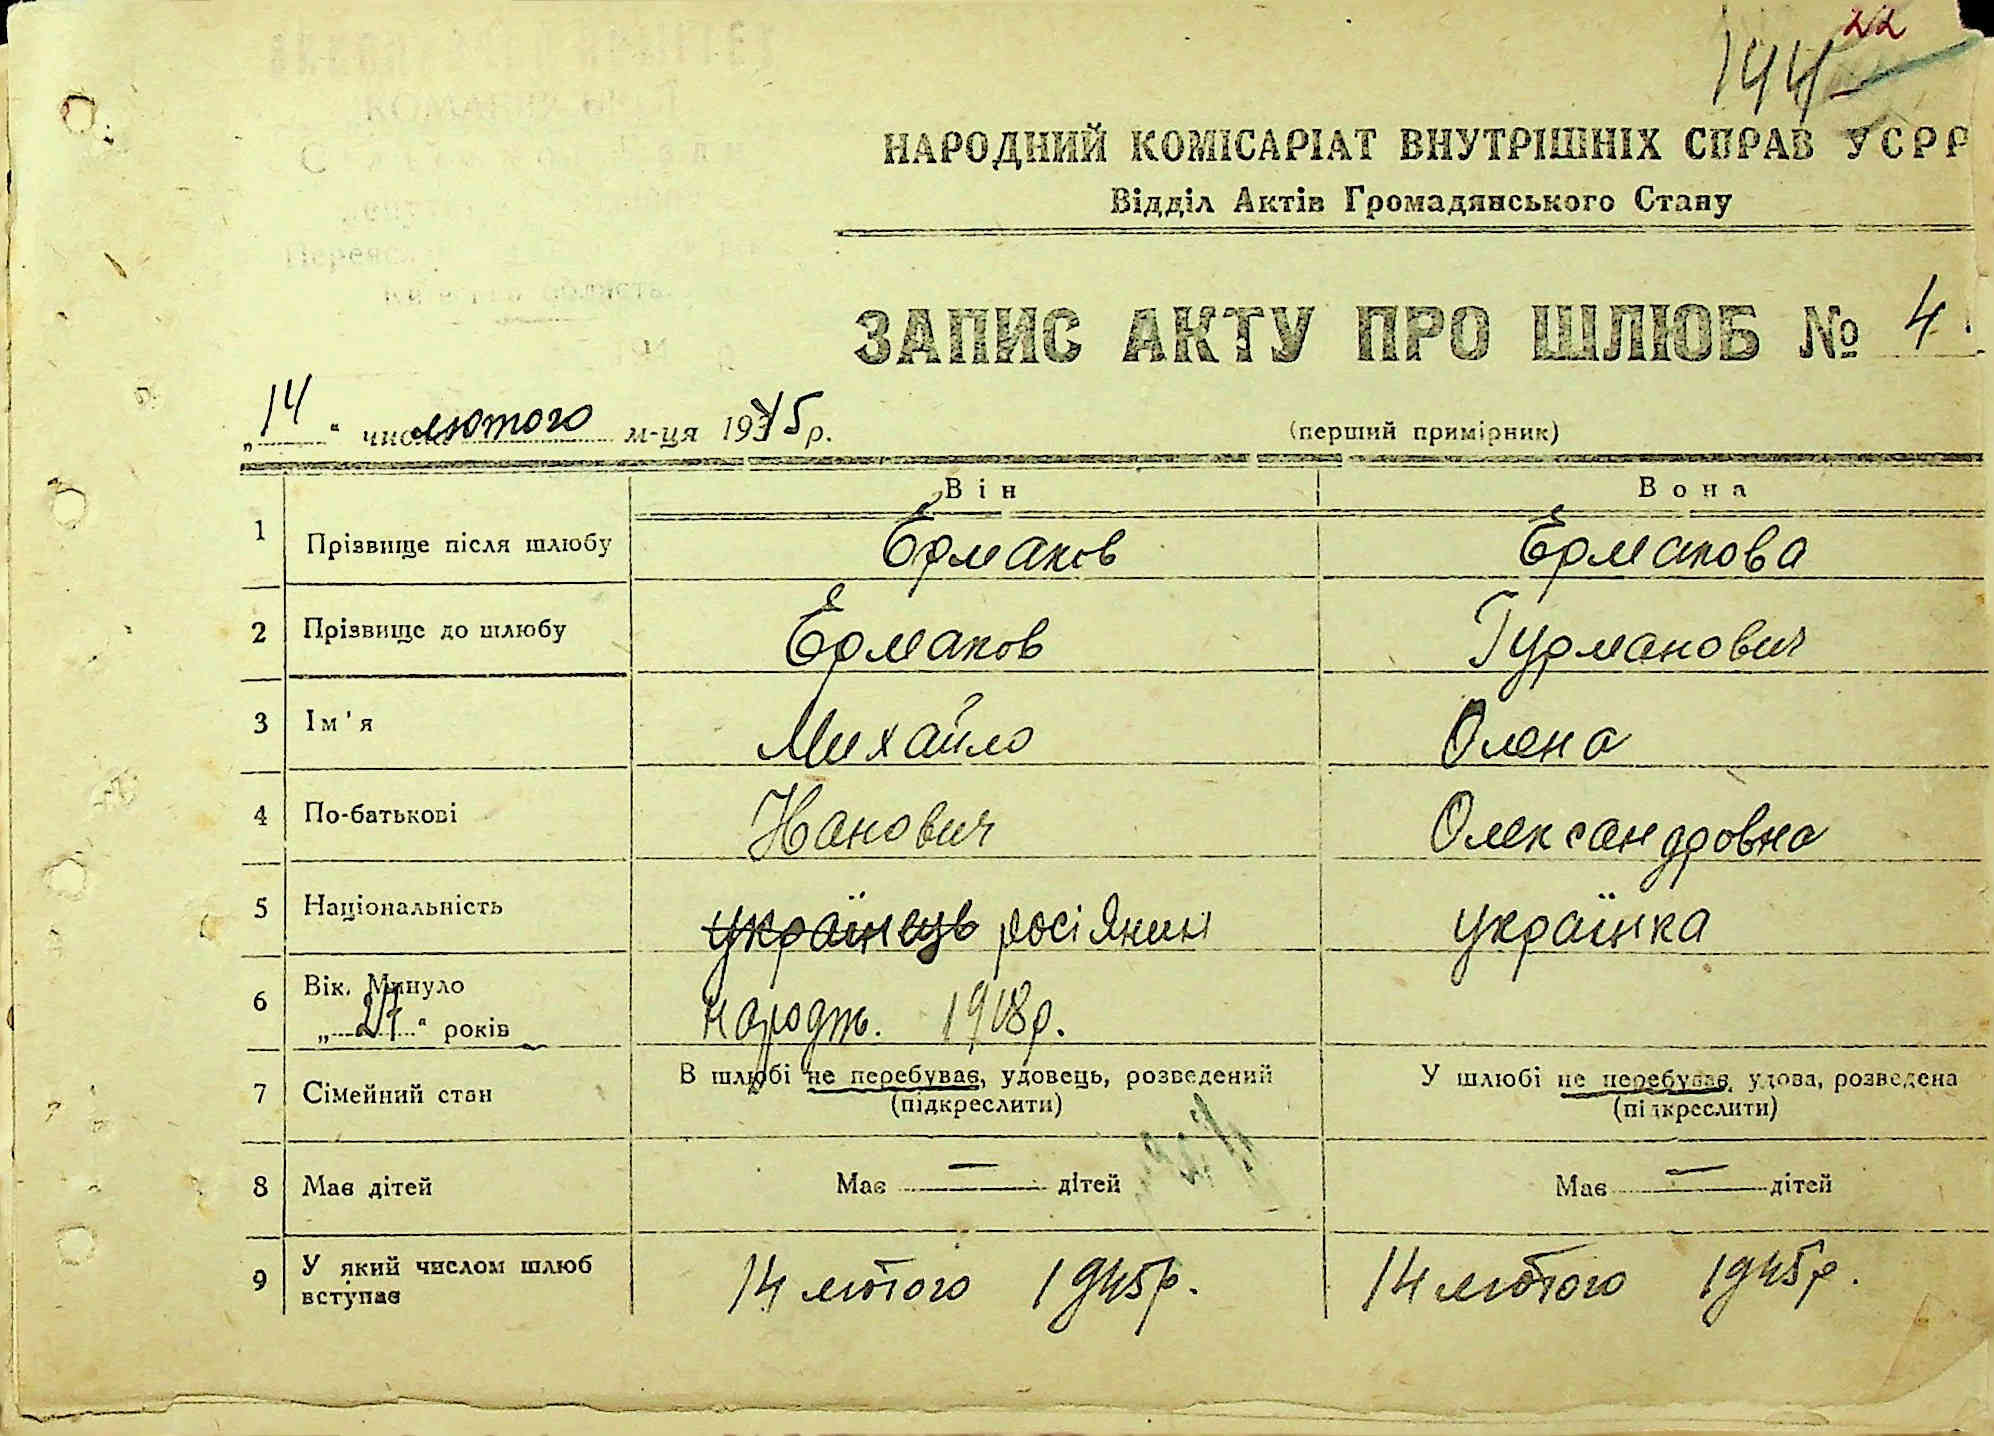 22
144
НАРОДНИЙ КОМІСАРІАТ ВНУТРІШНІХ СПРАВ УСРР
Відділ Актів Громадянського Стану
ЗАПИС АКТУ ПРО ШЛЮБ № 4
„14“ числа лютого м-ця 1945 р.
(перший примірник)
Він Вона
1 Прізвище після шлюбу Ермаков Ермакова
2 Прізвище до шлюбу Ермаков Гурманович
3 Ім'я Михайло Олена
4 По-батькові Іванович Олександровна
5 Національність українець росіянин українка
6 Вік. Минуло народж. 1918 р.
„27“ років
7 Сімейний стан В шлюбі не перебуває, удовець, розведений У шлюбі не перебуває, удова, розведена
(підкреслити) (підкреслити)
8 Має дітей Має — дітей Має — дітей
9 У який числом шлюб вступає 14 лютого 1945 р. 14 лютого 1945 р.